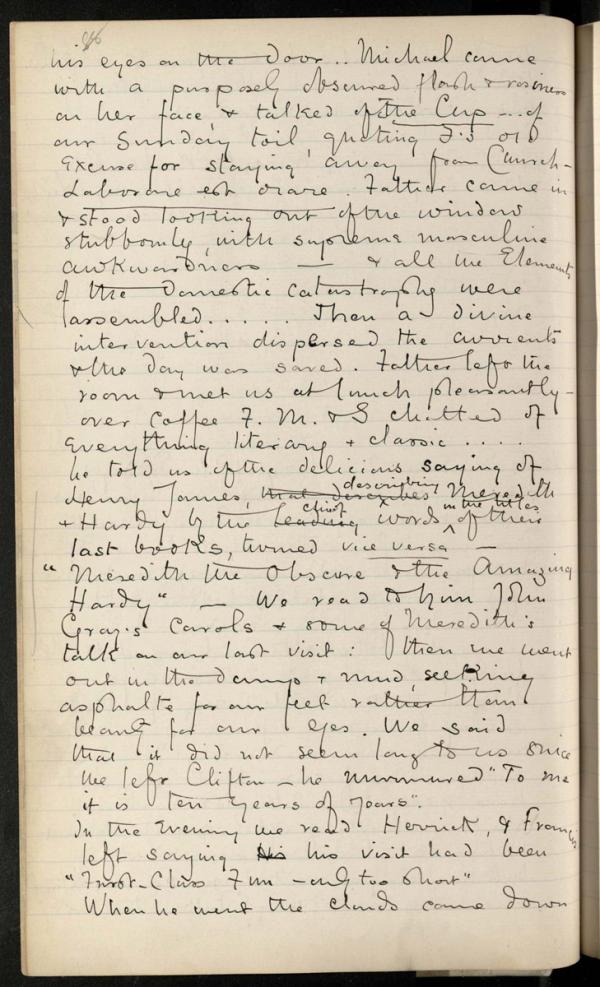 96
his eyes on the door .. Michael came
with a purposely obscured flash & rosiness
on her face, & talked of the Cup ... of
our Sunday toil, quoting F's old
Excuse for staying away from Church –
Laborare est orare. Father came in
& stood looking out of the window
stubbornly, with supreme masculine
awkwardness — & all the Elements
of the Domestic Catastrophe were
assembled ..... Then a divine
intervention dispersed the currents
& the day was saved. Father left the
room & met us at lunch pleasantly –
over Coffee F. M. & S chatted of
Everything literary & classic ....
he told us of the delicious saying of
Henry James, that describes describing Meredith
& Hardy by the leading chief words in the titles of their
last books, turned vice versa —
"Meredith the Obscure & the Amazing
Hardy" — We read to him John
Gray's Carols & some of Meredith's
talk on our last visit: then we went
out in the damp & mud, seeking
asphalte for our feet rather than
beauty for our eyes. We said
that it did not seem long to us since
we left Clifton – he murmured "To me
it is ten years of years".
In the Evening we read Herrick, & Francis
left saying his his visit had been
"First-Class Fun – only too short"
When he went the clouds came down